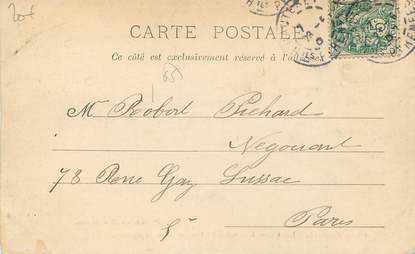 20f
CARTE POSTALE
Ce côté est exclusivement réservé à l'adresse
M. Robert Pichard
Négociant
78 Rue Gay Lussac
Paris
5